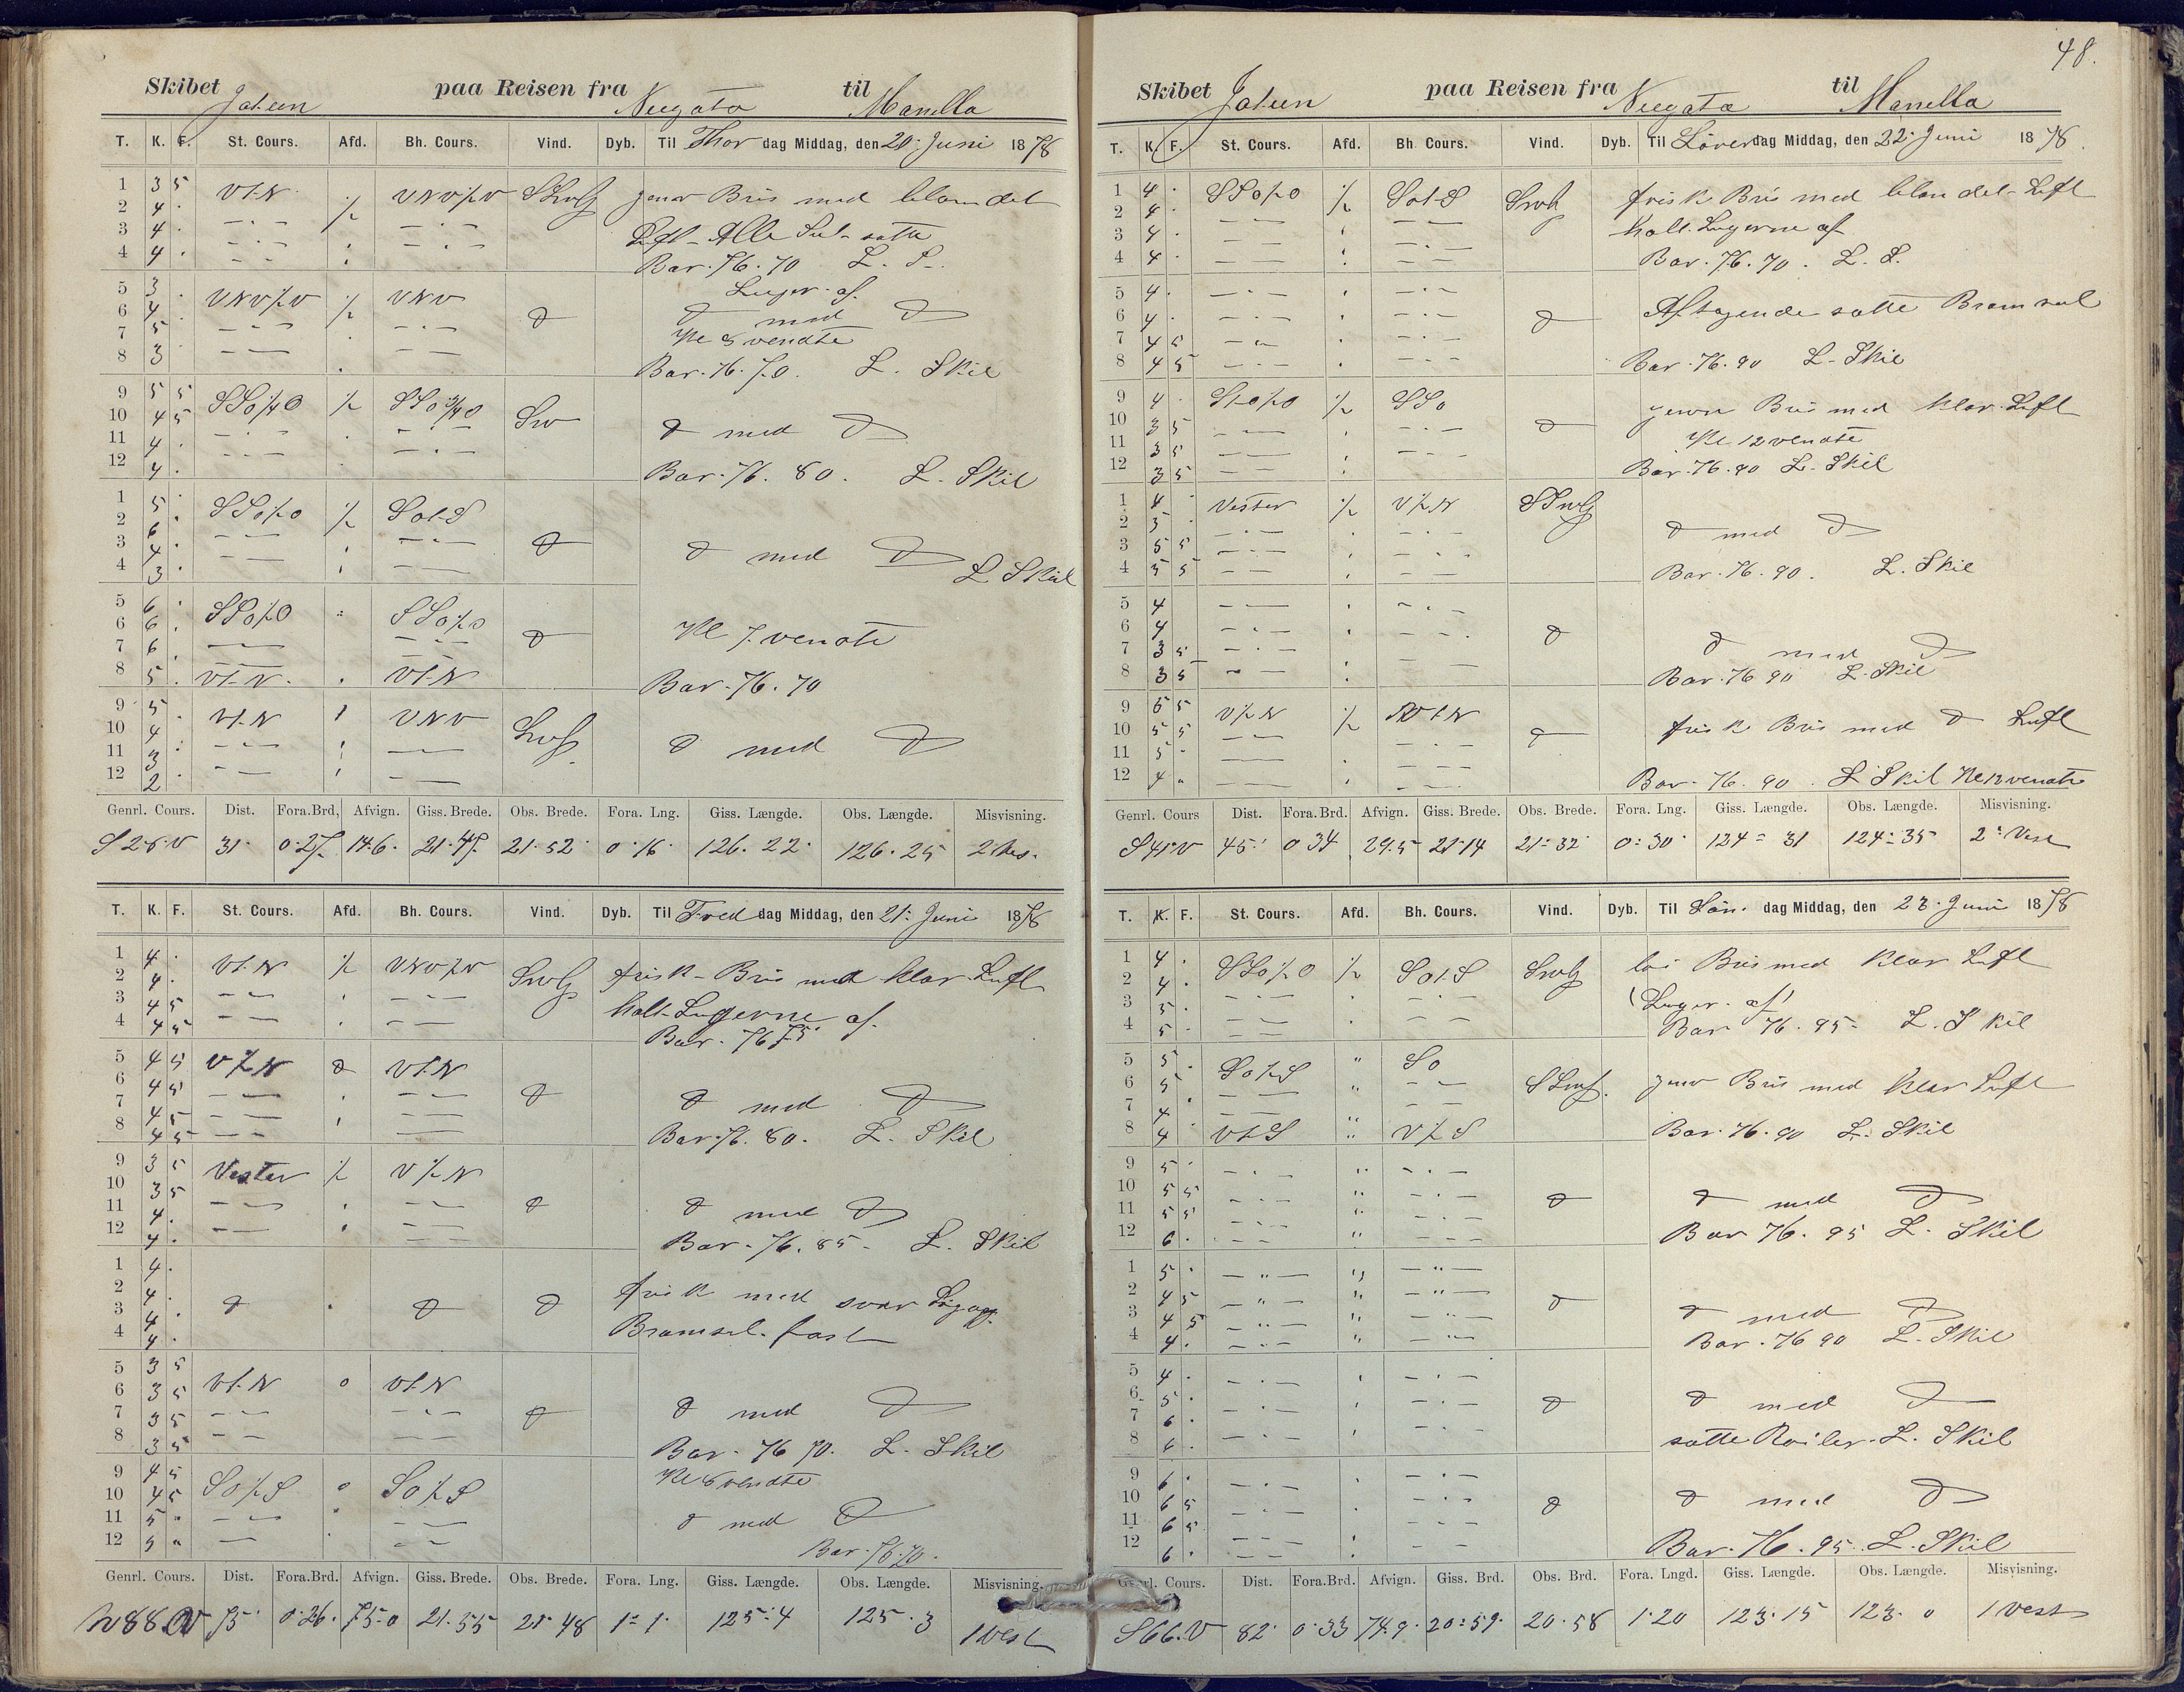 Skibet Jateen paa Reisen fra Neegata til Manella
T. K. F. St. Cours. Afd. Bh. Cours. Vind. Dyb. Til Thor dag Middag, den 20. Juni 1878
1 3 5 VtN ./. VNV½V SSWlg jevn Bris med blandet
2 4 . Luft - Alle Seil satte
3 4 .
4 4 . Bar. 76.70 L. S.
Luger. af.
5 3 . VNV½V ./. VNV
6 4 . d d med d
7 5 Kl 8 vendte
8 3 Bar. 76.70. L. Skil
9 5 5 SSO¼O ./. SSO¾O SW
10 4 5 d med d
11 4 .
12 4 . Bar. 76.80. L. Skil
1 5 . SSO½O ./. SOtS
2 6 . d
3 4 . d med d
4 3 . L Skil
5 6 . SSO½O SSO½O
6 6 . d Kl 7. vendte
7 6 .
8 5 . VtN . VtN Bar. 76.70
9 5 VtN VNV
10 4 . d med d
11 3
12 2 .
Genrl. Cours. Dist. Fora.Brd, Afvign. Giss. Brede. Obs. Brede. Fora. Lng. Giss. Længde. Obs. Længde. Misvisning.
S 28. V 31 0.27. 14.6. 21.47. 21.52 0.16 126.22 126.25 2 Ves.
T. K. F. St. Cours. Afd. Bh. Cours. Vind. Dyb. Til Fred dag Middag, den 21. Juni 1878
1 4 . VtN ./. VNV½V SWlg frisk Bris med klar Luft
2 4 .
3 4 5 halt Lugerne af.
4 4 5 Bar. 76 75
5 4 5 V½N d VtN
6 4 5 d
7 4 5 d med d
8 4 5 Bar. 76.80. L. Skil
9 3 5 Vester ./. V½N
10 3 5 d
11 4 . d med d
12 4 . Bar. 76.85. L. Skil
1 4 .
2 4 . frisk med svær
3 4 . d d d
4 4 . Bramseil fast
5 3 5 VtN VtN
6 3 5
7 3 5 d d med d
8 3 5 Bar. 76 70. L. Skil
9 4 5 SO½S SO½S Kl 8 vendte
10 4 5
11 5 d med d
12 5 Bar. 76.70.
Genrl. Cours. Dist. Fora.Brd. Afvign. Giss. Brede. Obs. Brede. Fora. Lng. Giss. Længde. Obs. Længde. Misvisning.
N 88 V 75 0.26. 75.0 21.55 21.48 1=1. 125.4 125.3 1 Vest
48.
Skibet Jateen paa Reisen fra Neegata til Manella
T. K. F. St. Cours. Afd. Bh. Cours. Vind. Dyb. Til Löver dag Middag, den 22. Juni 1878
1 4 . SSO½O ./. SOtS SWlg frisk Bris med blandet Luft
2 4 . halt Lugerne af
3 4 .
4 4 . Bar. 76.70. L. S.
5 4 . Aftagende satte Bramseil
6 4 . d
7 4 5
8 4 5 Bar. 76.90 L. Skil
9 4 . ./. SSO jevn Bris med klar Luft
10 3 5 d
11 3 5 Kl 12 vendte
12 3 5 Bar. 76.90 L. Skil
1 4 Vester ./. V½N SSWlg
2 5 . d med d
3 5 5
4 5 5 Bar. 76.90. L. Skil
5 4
6 4 d
7 3 5 d med d
8 3 5 Bar. 76 90 L. Skil
9 6 5 V½N ./. VtN frisk Bris med d Luft
10 5 5 d
11 5
12 4 Bar. 76.90. L Skil Kl 12 vendte
Genrl. Cours Dist. Fora.Brd. Afvign. Giss. Brede. Obs. Brede. Fora. Lng. Giss. Længde. Obs. Længde. Misvisning.
S 41 V 45 0 34 29.5 21.14 21=32 0=30 124=31 124=35 2 Vest
T. K. F. St. Cours. Afd. Bh. Cours. Vind. Dyb. Til Sön. dag Middag, den 23. Juni 1878
1 4 . SSO½O ./. SOtS SWlg löi Bris med klar Luft
2 4 .
3 5 . (Luger. af)
4 5 . Bar 76.95 L. Skil
5 5 . SO½S " SO
6 5 " SSWlg. jevn Bris med klar Luft
7 4
8 4 VtS " V½S Bar. 76.90 L. Skil
9 5
10 5 5 d d med d
11 5 5
12 6 . Bar 76.95 L. Skil
1 5 .
2 4 5 d
3 4 5 d med d
4 4 . Bar. 76 90 L. Skil
5 4 .
6 5 . d d med d
7 6 .
8 6 . satte Roiler. L. Skil
9 6 .
10 6 5 d d med d
11 6 5
12 6 . Bar. 76.95. L. Skil
Genrl. Cours. Dist. Fora.Brd. Afvign. Giss. Brd. Obs. Brd. Fora. Lngd. Giss. Længde. Obs. Længde. Misvisning.
S 66. V 82 0.33 74.9. 20=59. 20.58 1.20 123.15 123.0 1 Vest